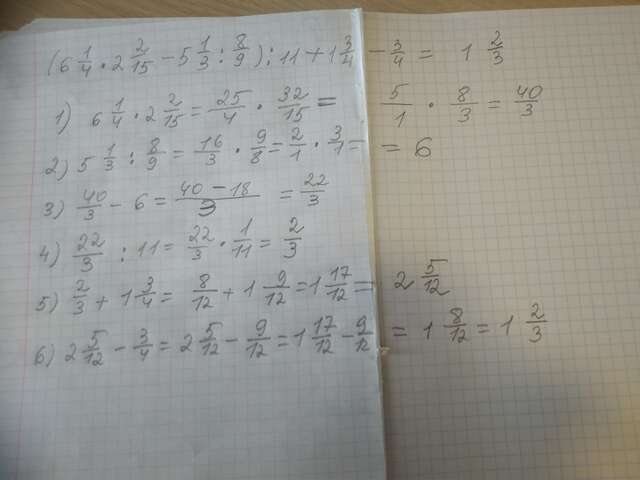 (6 1/4 · 2 2/15 − 5 1/3 : 8/9) : 11 + 1 3/4 − 3/4 = 1 2/3
1) 6 1/4 · 2 2/15 = 25/4 · 32/15 = 5/1 · 8/3 = 40/3
2) 5 1/3 : 8/9 = 16/3 · 9/8 = 2/1 · 3/1 = = 6
3) 40/3 − 6 = (40 − 18)/3 = 22/3
4) 22/3 : 11 = 22/3 · 1/11 = 2/3
5) 2/3 + 1 3/4 = 8/12 + 1 9/12 = 1 17/12 = 2 5/12
6) 2 5/12 − 3/4 = 2 5/12 − 9/12 = 1 17/12 − 9/12 = 1 8/12 = 1 2/3